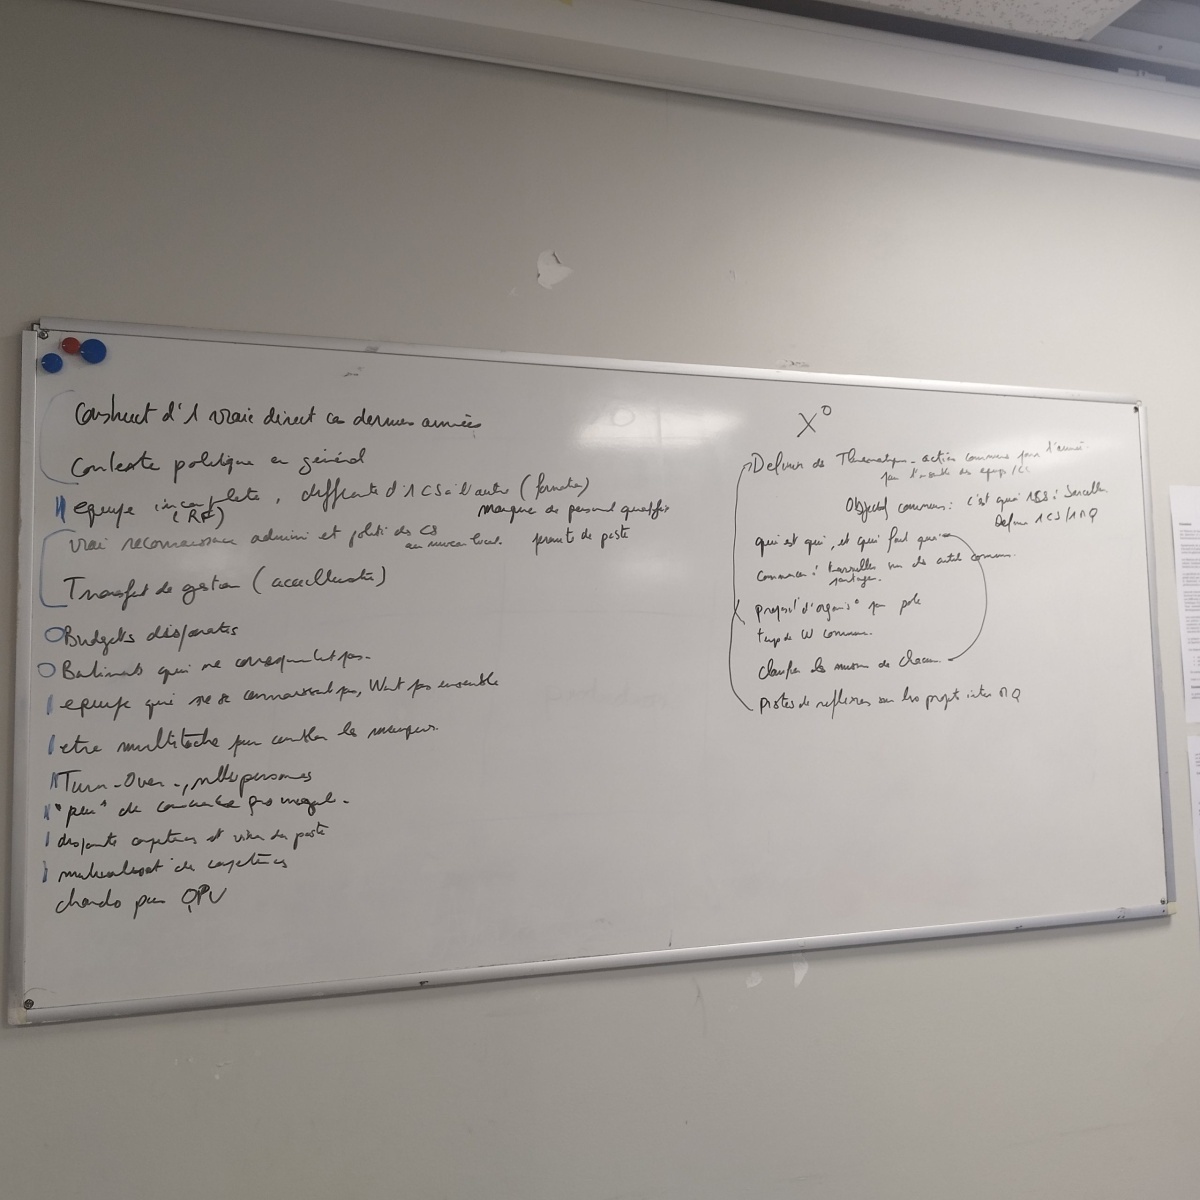 Construct d'1 vraie direct ces dernières années
Contexte politique en général
equipe incomplete, differente d'1 CS à l'autre (formation)
(RF)
manque de personnel qualifié
vrai reconnaissance admini et politi des CS
au niveau local.
de poste
Transfert de gestion (accélérée)
Budgets disparates
Batiments qui ne correspondent pas.
equipe qui ne se connaissent pas, Wnt pas ensemble
etre multitache pour combler les manques.
Turn-Over, nlles personnes
"peu" de
disparité compétences et des poste
mutualisat° des compétences
chando pour QPV
X°
Definir des Thematiques - action communes pour l'année
par l'ensemble des equip /CS
Objectif commun : c'est quoi 1 CS à Sarcelles
Definir 1 CS / 1 MQ
qui est qui, et qui fait quoi
commencer : travailler sur des outils communs.
partager.
proposit° d'organis° par pole
temps de W commun.
clarifier les missions de chacun
Pistes de reflexion sur les projets inter MQ